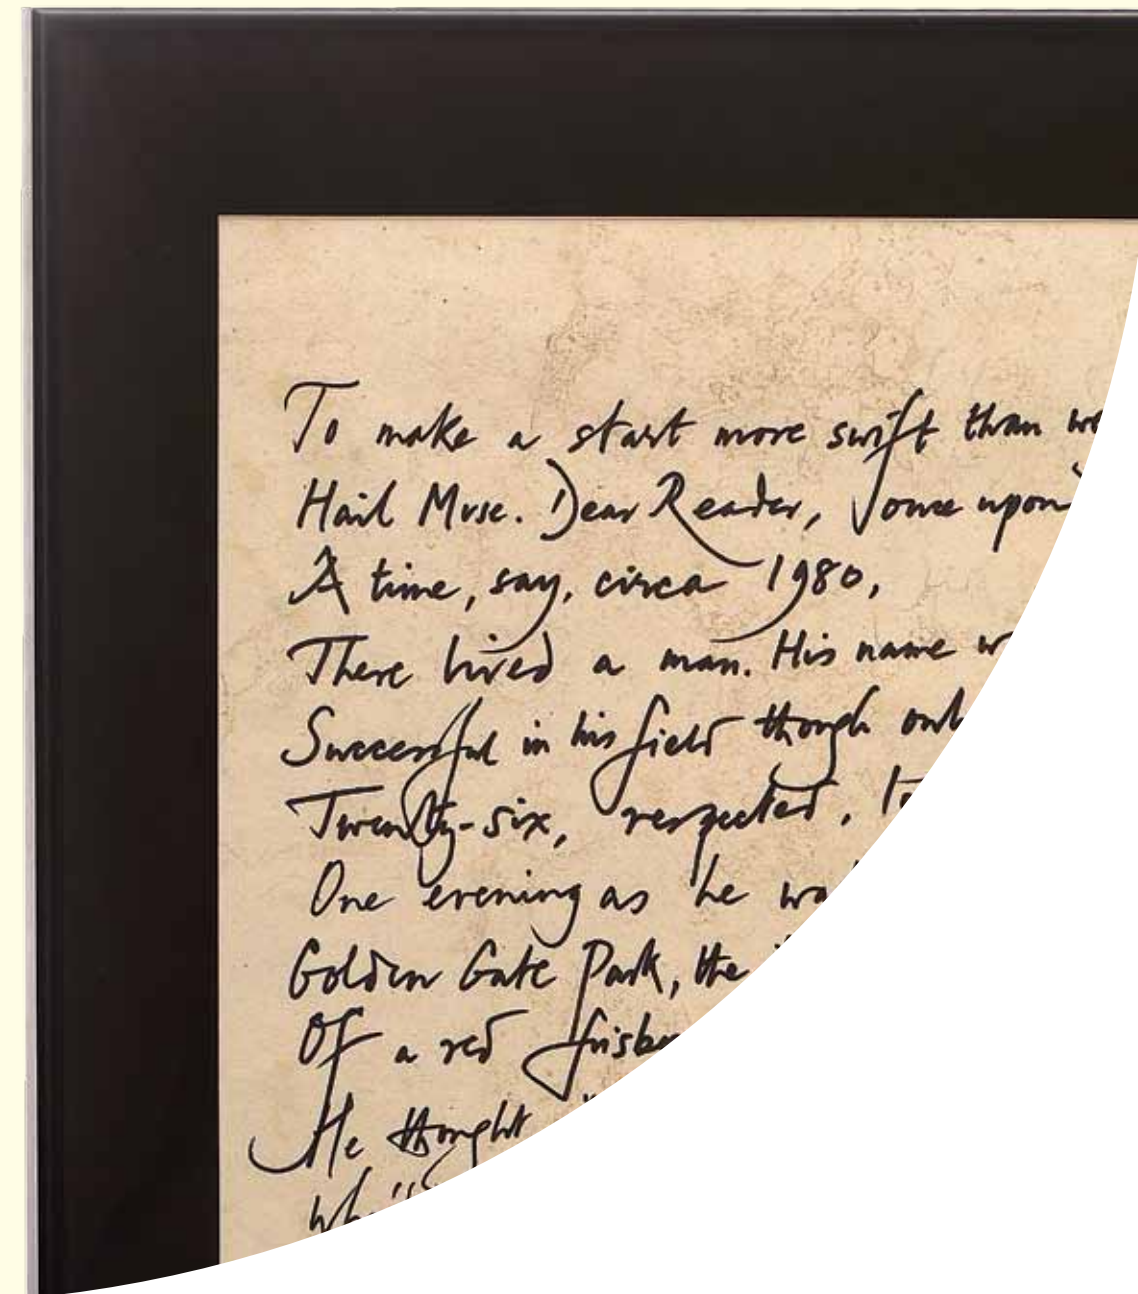 To make a start more swift than
Hail Muse. Dear Reader, once upon
A time, say, circa 1980,
There lived a man. His name
Successful in his field though
Twenty-six, respected,
One evening as he
Golden Gate Park, the
Of a red
He thought